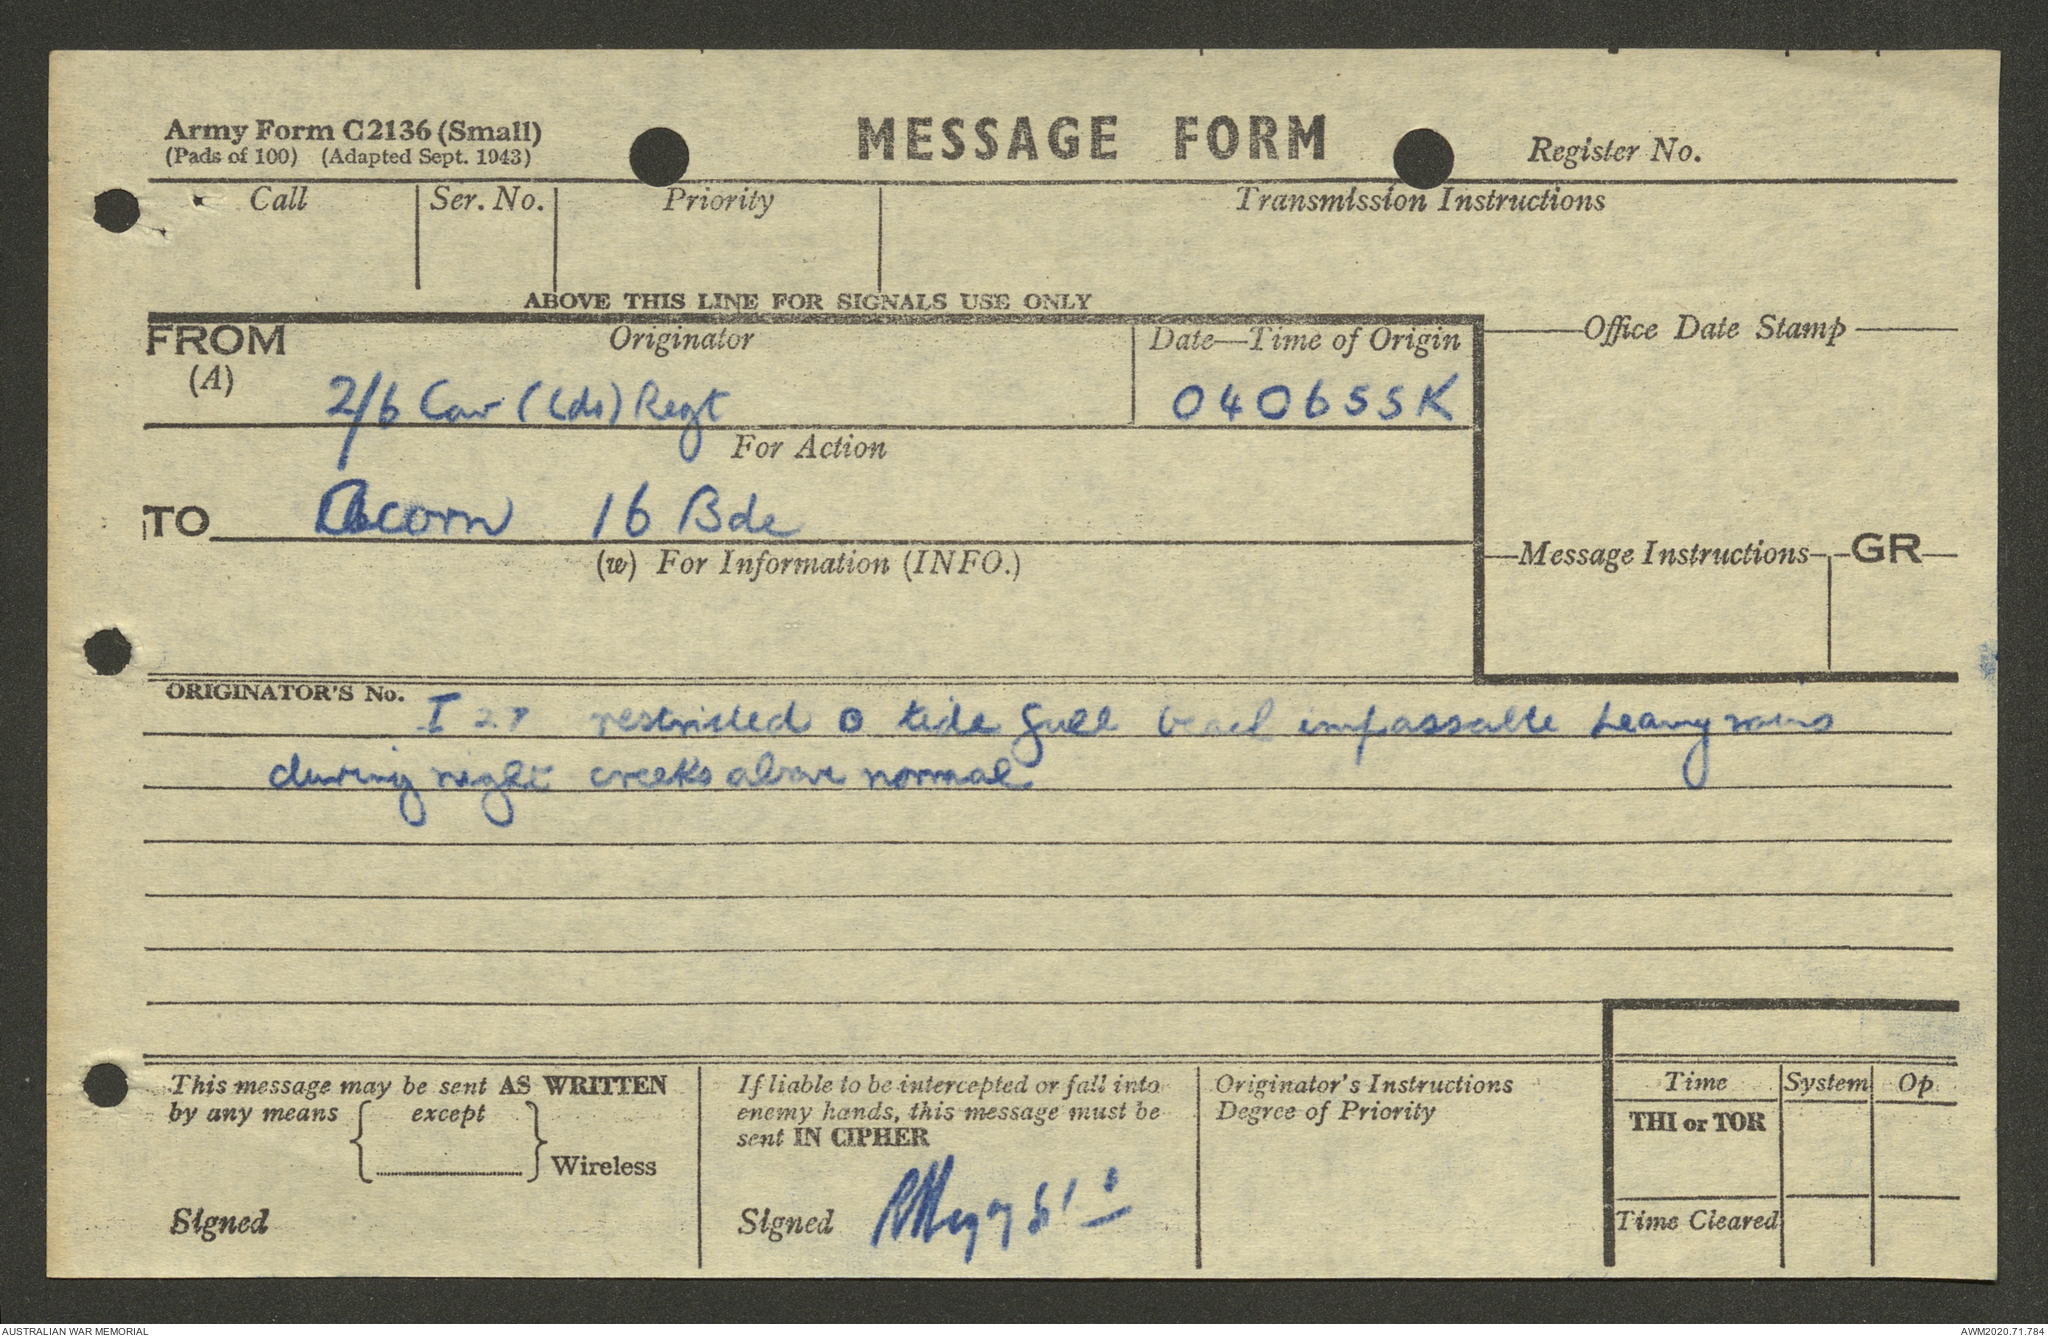 Army Form C2136 (Small)
(Pads of 100) (Adapted Sept. 1943)
MESSAGE FORM
Register No.
Call
Ser. No.
Priority
Transmission Instructions
ABOVE THIS LINE FOR SIGNALS USE ONLY
FROM
(A)
Originator
2/6 Cav (Cdo) Regt
Date—Time of Origin
040655K
Office Date Stamp
For Action
TO
Acorn 16 Bde
(w) For Information (INFO.)
Message Instructions
GR
ORIGINATOR'S No.
I 27 restricted O tide full beach impassable heavy rains
during night creeks above normal
This message may be sent AS WRITTEN
by any means { except }
Wireless
Signed
If liable to be intercepted or fall into
enemy hands, this message must be
sent IN CIPHER
Signed
Originator's Instructions
Degree of Priority
Time
System
Op
THI or TOR
Time Cleared
AUSTRALIAN WAR MEMORIAL
AWM2020.71.784